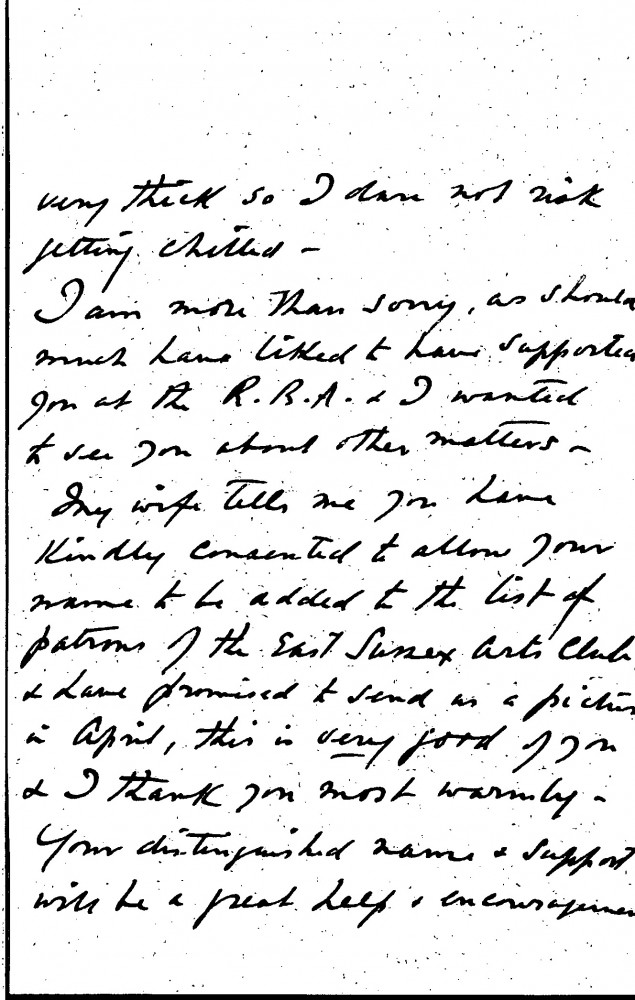 very thick so I dare not risk
getting chilled –
I am more than sorry, as should
much have liked to have supported
you at the R.B.A. & I wanted
to see you about other matters –
My wife tells me you have
kindly consented to allow your
name to be added to the list of
patrons of the East Sussex Arts Club
& have promised to send us a picture
in April, this is very good of you
& I thank you most warmly –
Your distinguished name & support
will be a great help & encouragemen